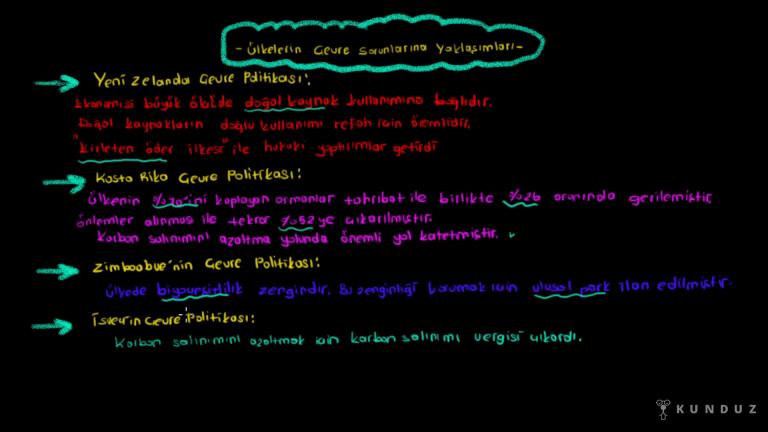 - Ülkelerin Çevre Sorunlarına Yaklaşımları -
Yeni Zelanda Çevre Politikası:
Ekonomisi büyük ölçüde doğal kaynak kullanımına bağlıdır.
Doğal kaynakların doğru kullanımı refah için önemlidir.
"kirleten öder ilkesi" ile hukuki yaptırımlar getirdi
Kosta Rika Çevre Politikası:
Ülkenin %70'ini kaplayan ormanlar tahribat ile birlikte %26 oranında gerilemiştir
önlemler alınması ile tekrar %52'ye çıkarılmıştır.
Karbon salınımını azaltma yolunda önemli yol katetmiştir.
Zimbabve'nin Çevre Politikası:
Ülkede biyoçeşitlilik zengindir. Bu zenginliği korumak için ulusal park ilan edilmiştir.
İsveç'in Çevre Politikası:
Karbon salınımını azaltmak için karbon salınımı vergisi çıkardı.
KUNDUZ